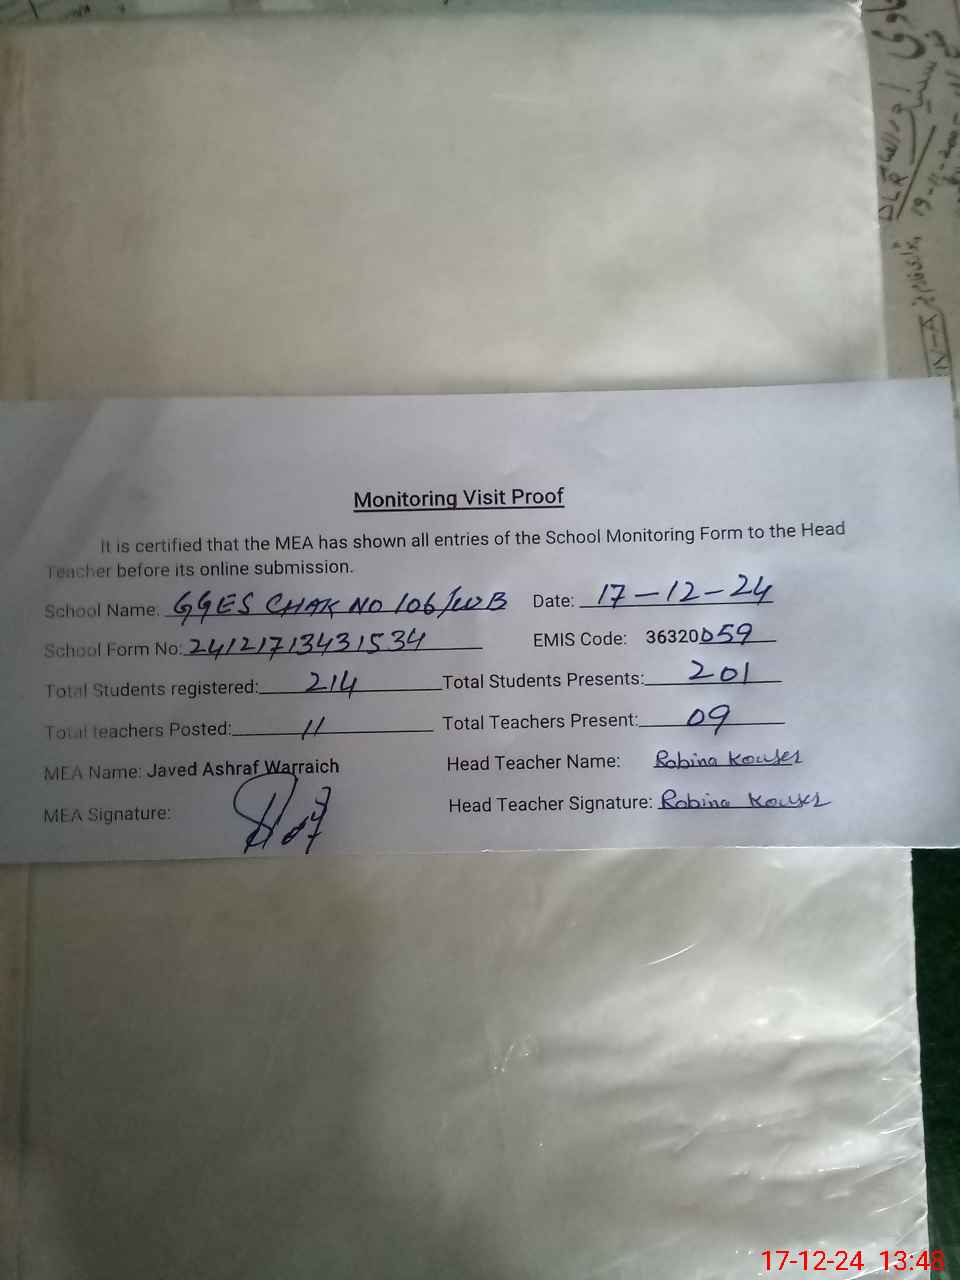 Monitoring Visit Proof
It is certified that the MEA has shown all entries of the School Monitoring Form to the Head
Teacher before its online submission.
School Name: GGES CHAK NO 106/WB Date: 17-12-24
School Form No: 24121713431534 EMIS Code: 36320059
Total Students registered: 214 Total Students Presents: 201
Total teachers Posted: 11 Total Teachers Present: 09
MEA Name: Javed Ashraf Warraich Head Teacher Name: Robina Kouser
MEA Signature: Head Teacher Signature: Robina Kouser
17-12-24 13:48